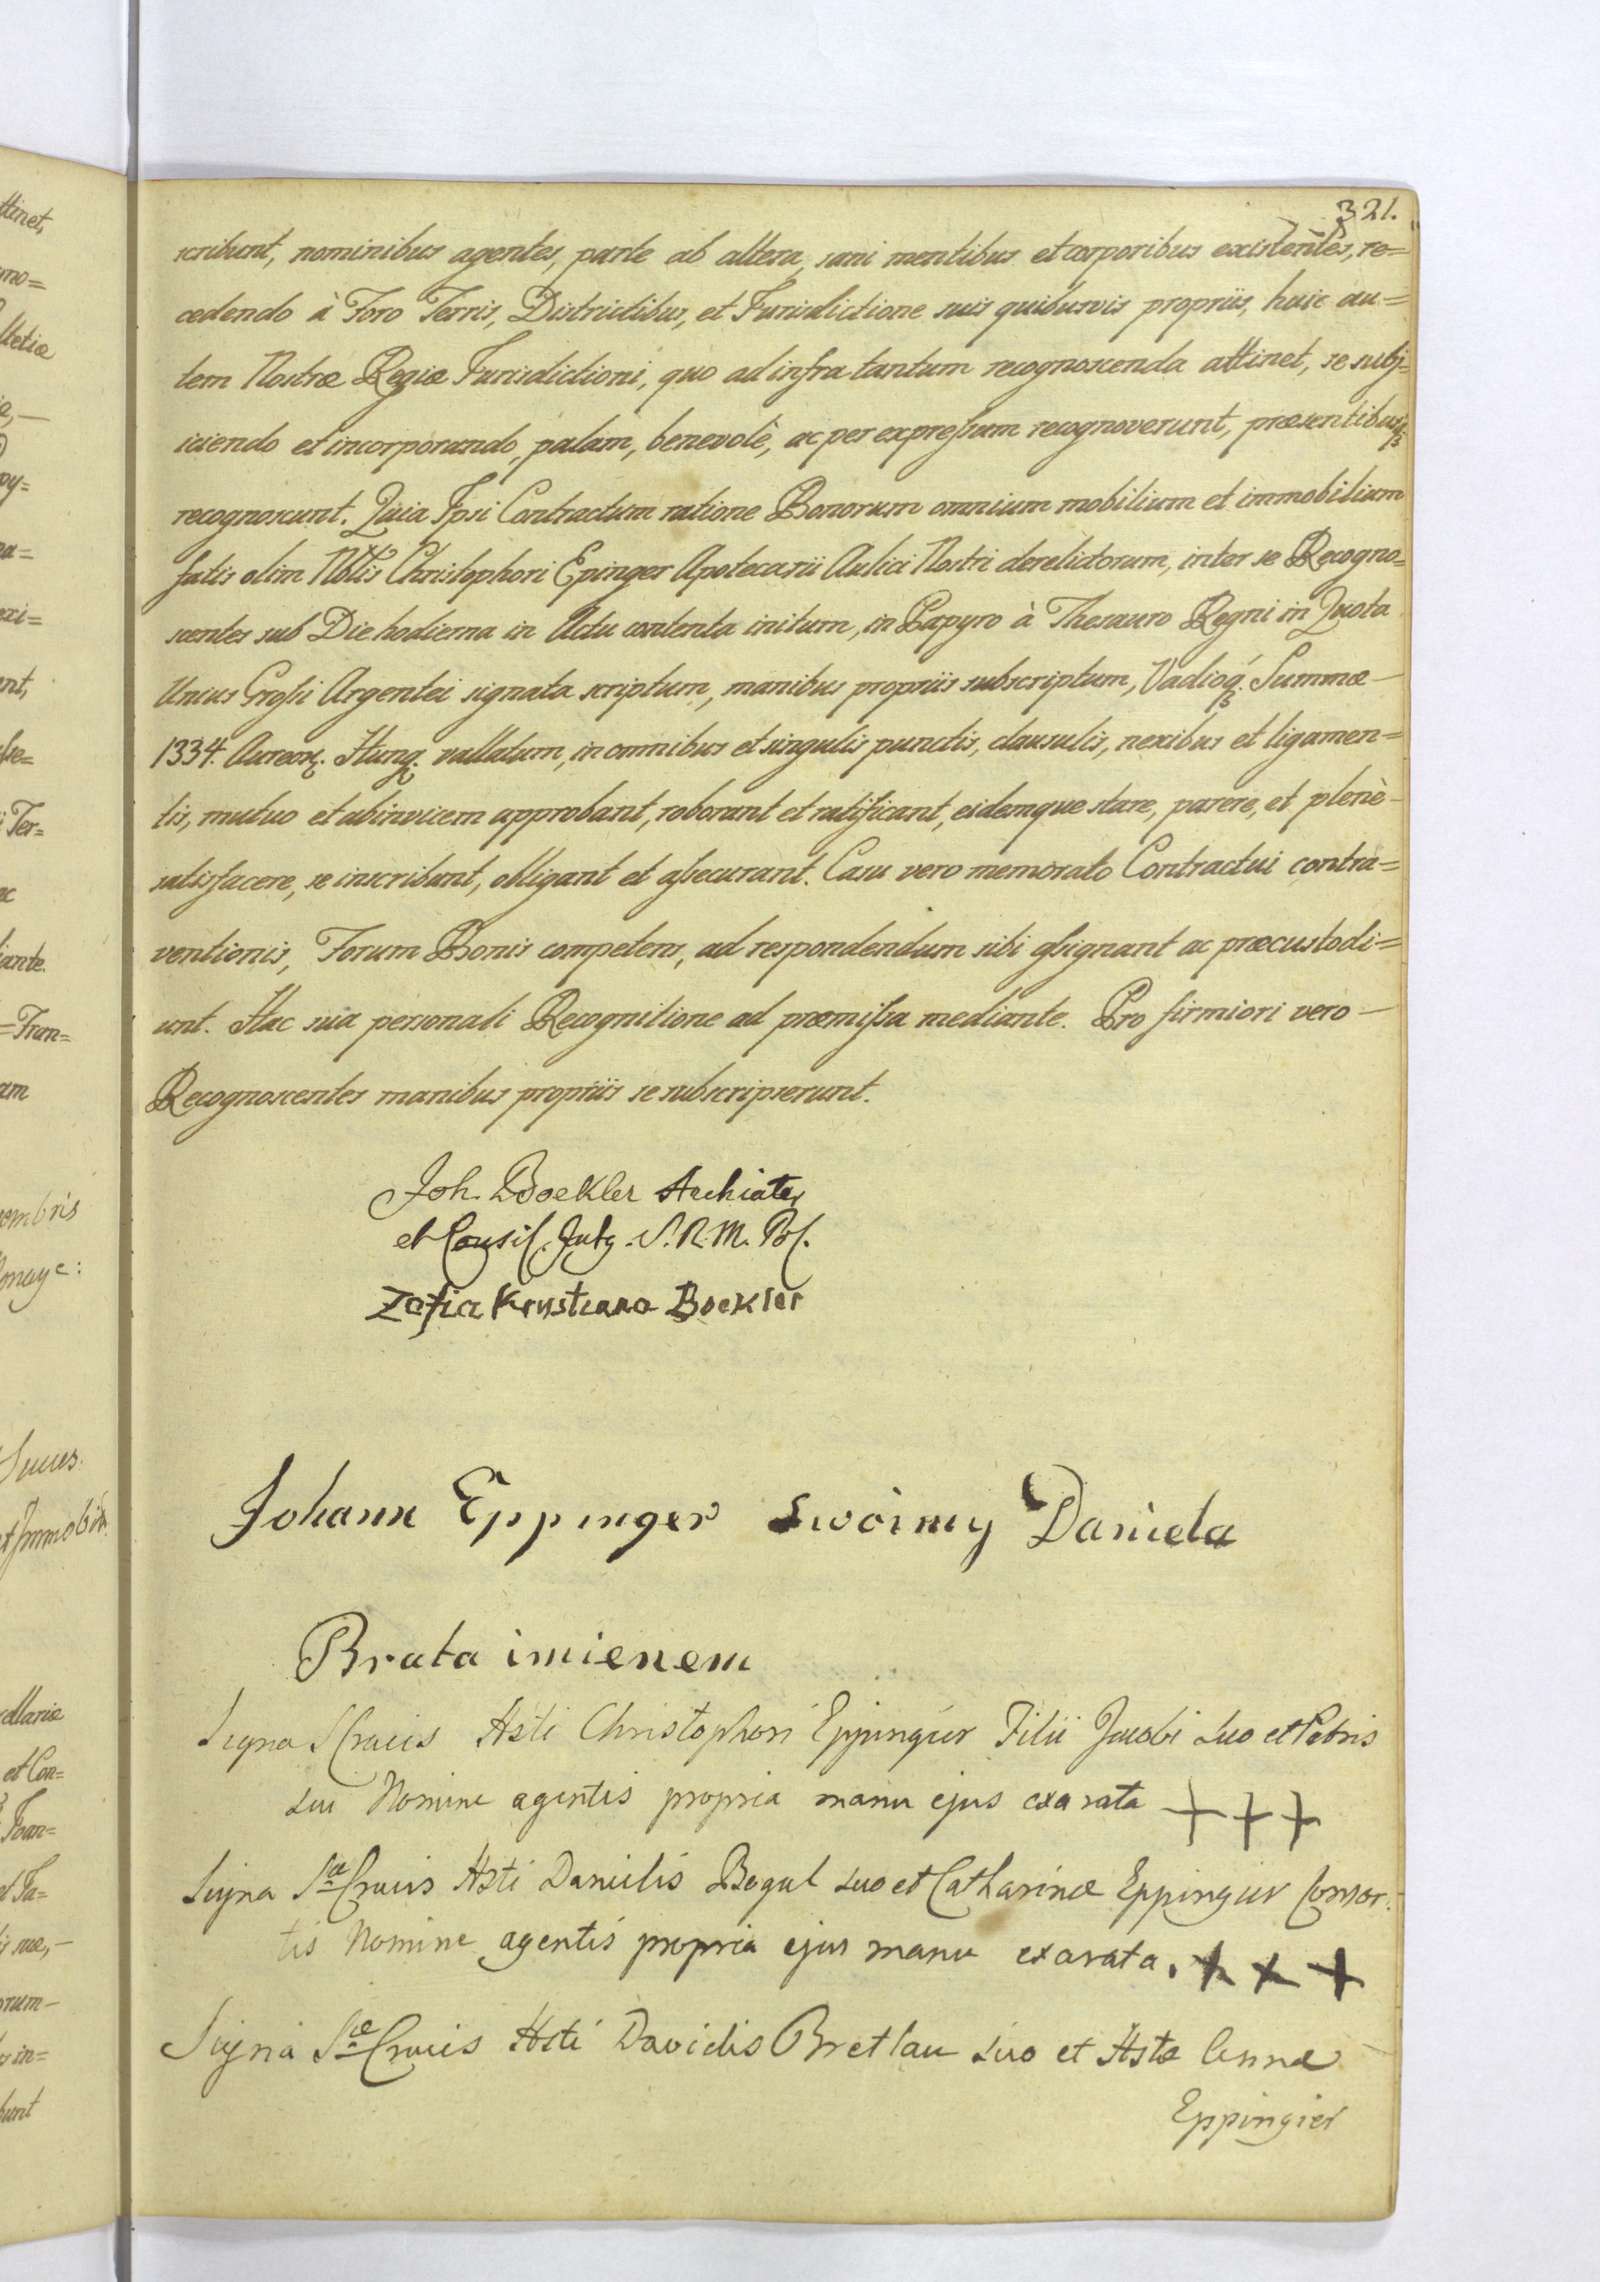 321.
scribunt, nominibus agentes, parte ab altera, sani mentibus et corporibus existentes, re=
cedendo à Foro Terris, Districtibus, et Jurisdictione suis quibusvis propriis, huic au=
tem Nostræ Regiæ Jurisdictioni, quo ad infra tantum recognoscenda attinet, se subj=
iciendo et incorporando, palam, benevolè, ac per expressum recognoverunt, præsentibusq;
recognoscunt. Quia Ipsi Contractum ratione Bonorum omnium mobilium et immobilium
fatis olim Nblis Christophori Epinger Apotecarii Aulici Nostri derelictorum, inter se Recogno=
scentes sub Die hodierna in Actu contenta initum, in Papyro à Thesauro Regni in Quota
Unius Grossi Argentei signata scriptum, manibus propriis subscriptum, Vadioq; Summæ —
1334. Aureor. Hung. vallatum, in omnibus et singulis punctis, clausulis, nexibus et ligamen=
tis, mutuo et abinvicem approbant, roborant et ratificant, eidemque stare, parere, et plenè —
satisfacere, se inscribunt, obligant et assecurant. Casu vero memorato Contractui contra=
ventionis, Forum Bonis competens, ad respondendum sibi assignant ac præcustodi=
unt. Hac sua personali Recognitione ad præmissa mediante. Pro firmiori vero —
Recognoscentes manibus propriis se subscripserunt.
Joh. Boekler Archiater
et Consil. Intg. S. R. M. Pol.
Zofia Krystiana Boekler
Johann Eppinger Swoimy Daniela
Brata imienem
Signa S Crucis Hsti Christophori Eppingier Filii Jacobi Suo et Patris
sui Nomine agentis propria manu ejus exarata + + +
Signa Sæ Crucis Hsti Danielis Begul suo et Catharinæ Eppingier Consor=
tis Nomine agentis propria ejus manu exarata. + + +
Signa Sæ Crucis Hsti Davidis Bretlau suo et Hstæ Annæ
Eppingier